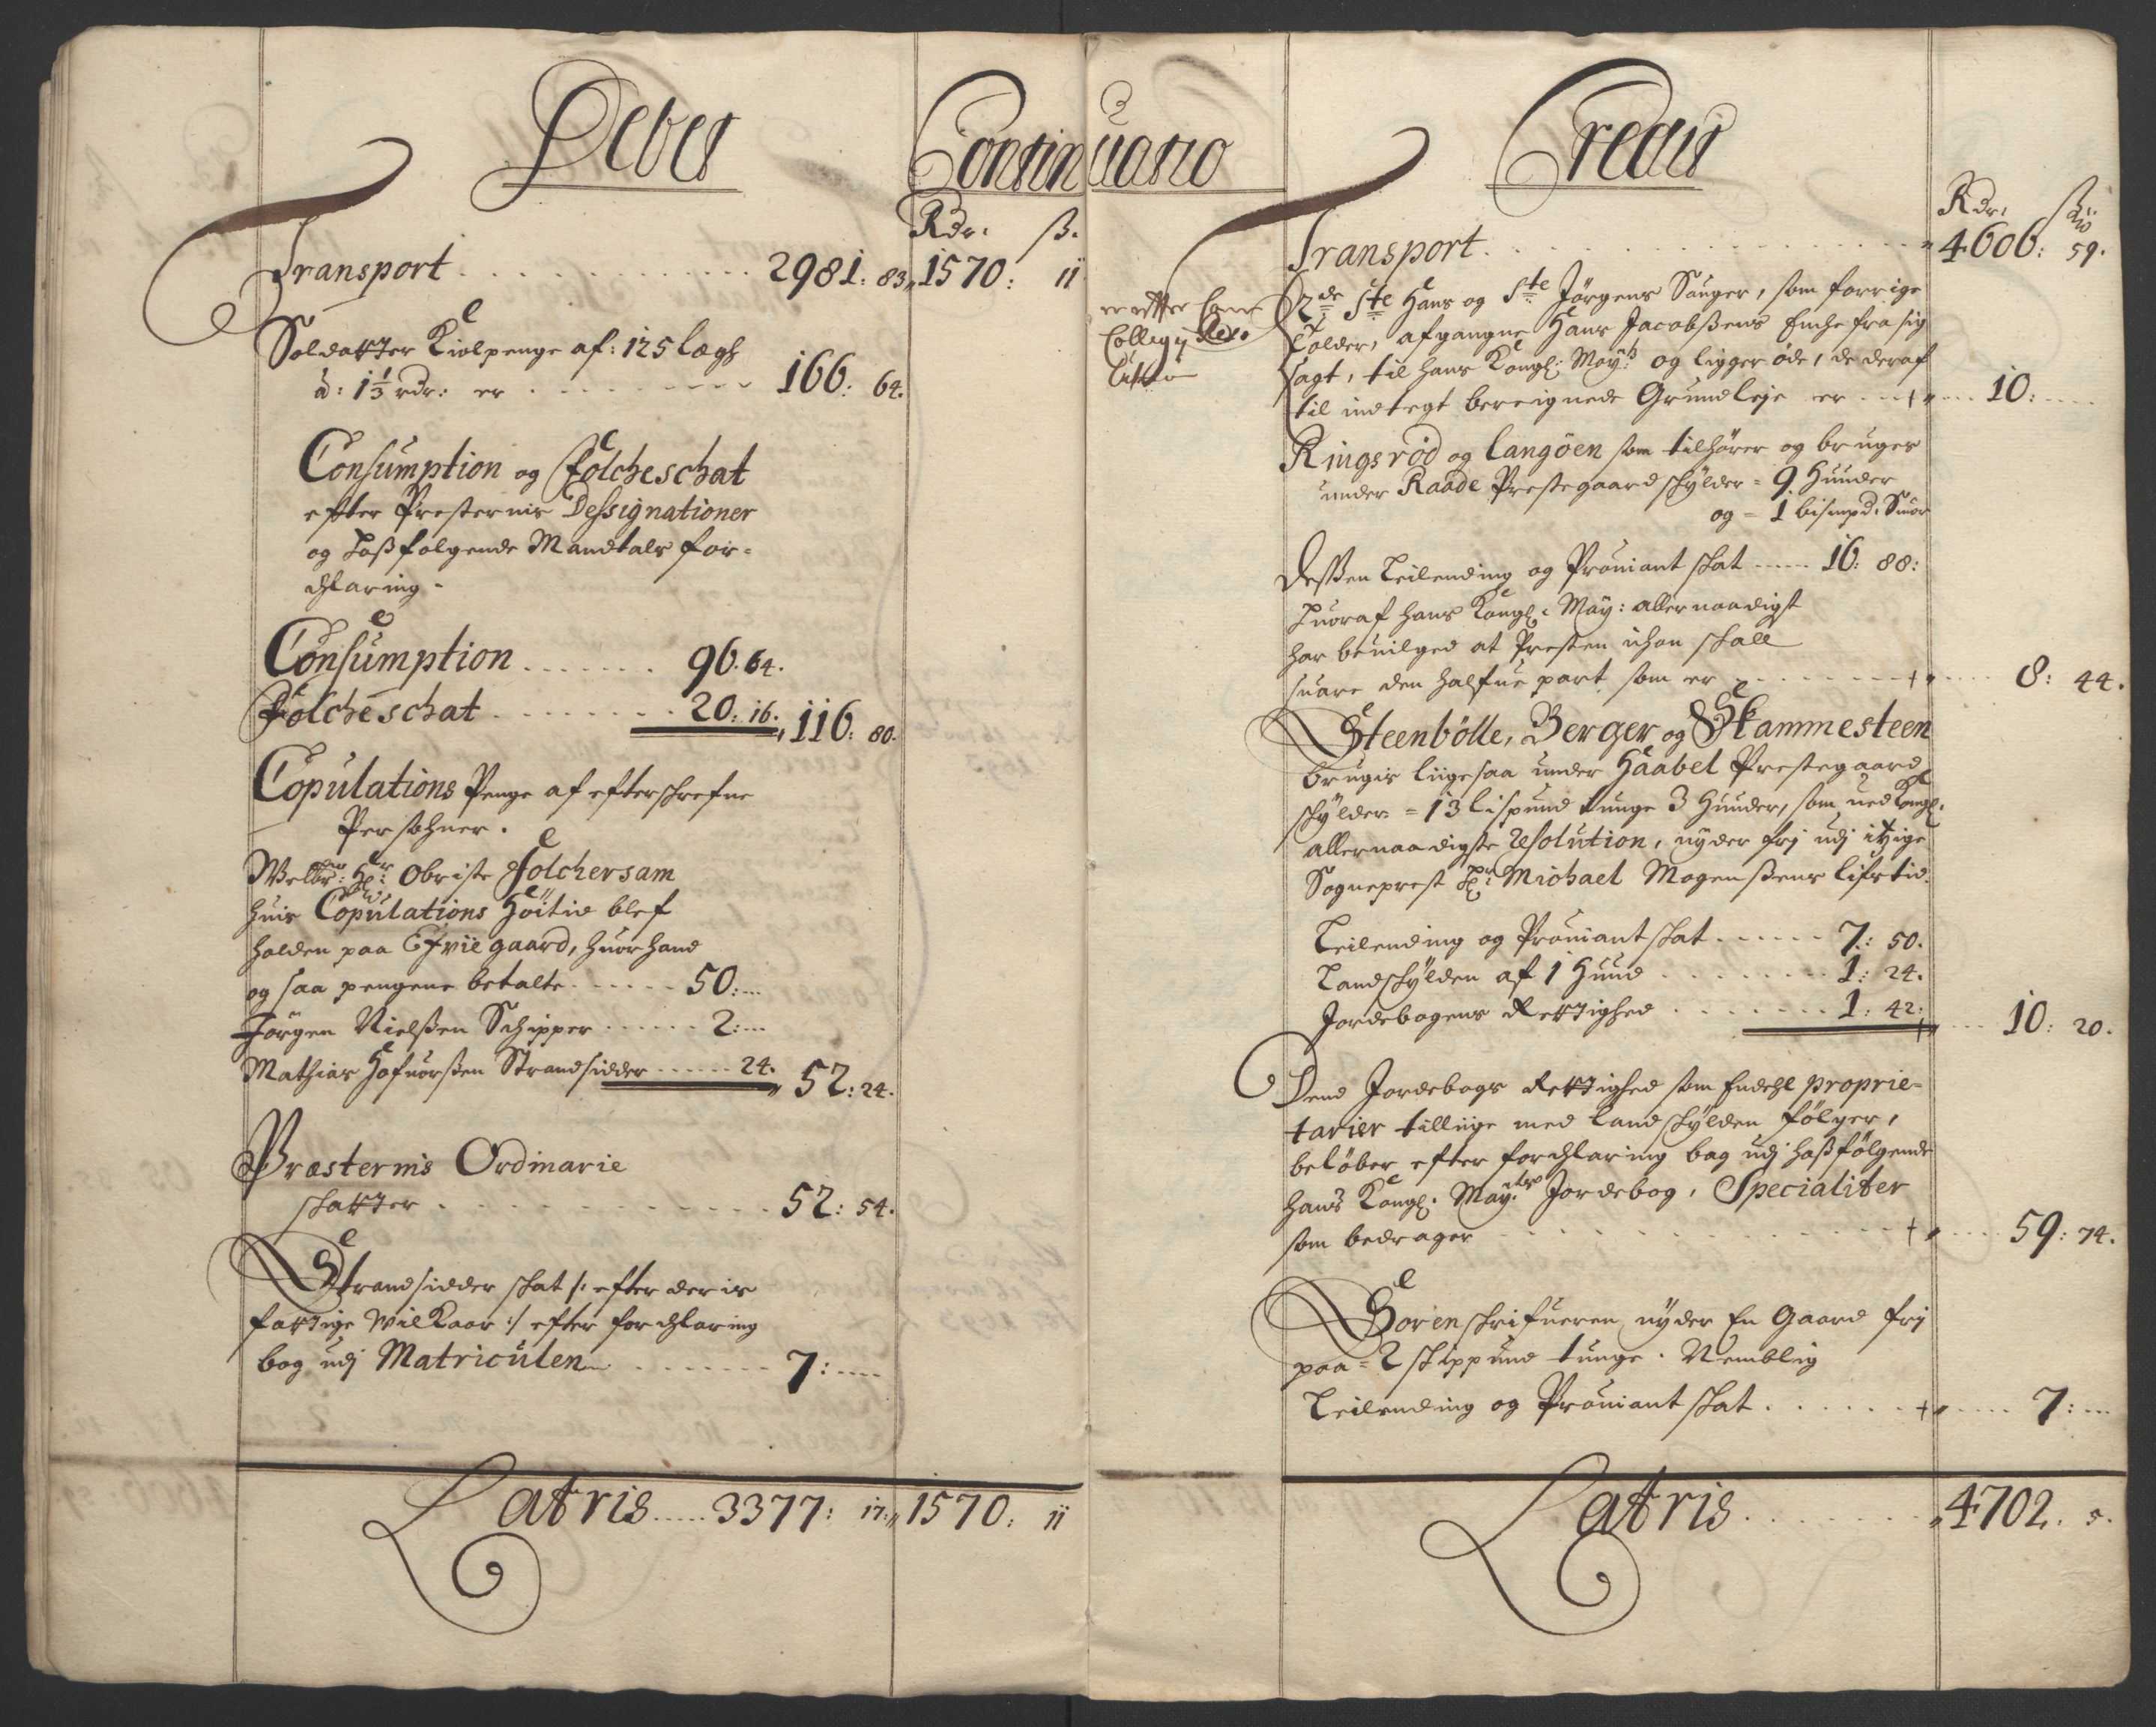 Debet
Continuatio
Rdr: ß.
Transport . . . . . 2981: 83 1570: 11
Soldatter Kiolpenge af: 125 Lægh
à: 1 1/3 rdr: er . . . . . 166: 64.
Consumption og Folcheschat
efter Presternis Dessignationer
og Hoßfølgende Mandtals for=
chlaring -
Consumption . . . . . 96. 64.
Folcheschat . . . . . 20: 16. 116: 80.
Copulations Penge af efterschrefne
Persohner.
Welbr: Hr: Obriste Folchersam
huis Copulations Höitid blef
holden paa Efvie gaard, huor hand
og saa pengene betalte . . . . . 50: ---
Jörgen Nielßen Schipper . . . . . 2: ---
Mathias Hafuorßen Strandsidder . . . . . 24. 52: 24.
Præsternis Ordinarie
skatter . . . . . 52: 54.
Strandsidder skat /: efter deris
fattige Wilkaar :/ efter forchlaring
bag udj Matriculen . . . . . 7: ---
Latris ..... 3377: 17: 1570: 11
Credit
Rdr: ß:
Transport . . . . . 4606: 59.
Collegij Reso
lution
2de Ste Hans og Ste Jörgens Sauger, som forrige
Tolder, afgangne Hans Jacobßens Enche fra sig
sagt, til Hans Kongl: Mayts: og ligger öde, de deraf
til indtegt beregnede Grundleje er . . . 10: ---
Ringsröd og Langöen som tilhörer og bruges
under Raade Prestegaard schylder = 9 Hunder
og = 1 bismpd: Smör
Deßen Leilending og Prouiant skat ----- 16: 88:
Huoraf Hans Kongl: May: allernaadigst
har beuilged at Presten ichon skall
suare den halfue part som er . . . . . 8: 44.
Steenbölle, Berger og Skammesteen
brugis liigesaa under Haabel Prestegaard
schylder = 13 lispund tunge 3 Hunder, som ued Kongl:
allernaadigste Resolution, nyder frj udj itzige
Sogneprest Hr: Michael Mogenßens lifstid.
Leilending og Prouiant skat . . . . . 7: 50.
Landschylden af 1 Hund . . . . . 1: 24.
Jordebogens Rettighed . . . . . 1: 42: 10: 20.
Dend Jordebogs Rettighed som Endehl proprie=
tarier tilliige med Landschylden fölger,
belöber efter forchlaring bag udj hoßfölgende
Hans Kongl: Mayts: Jordebog, Specialiter
som bedrager . . . . . 59: 74.
Sorenschrifueren nyder En Gaard frj
paa = 2 schippund tunge. Nemblig
Leilending og Prouiant skat . . . . . 7: ---
Latris . . . . . 4702. 5.